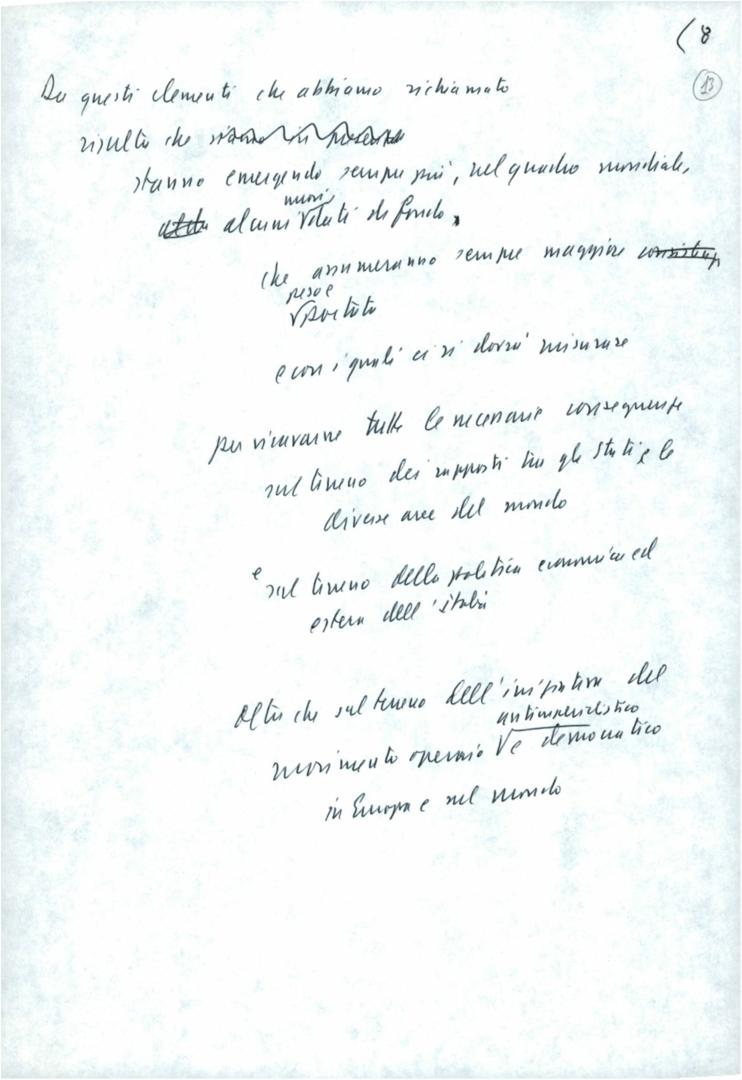 (8
13
Da questi elementi che abbiamo richiamato
risulta che
stanno emergendo sempre più, nel quadro mondiale,
nuovi
alcuni dati di fondo,
che assumeranno sempre maggiore
peso e
portata
e con i quali ci si dovrà misurare
per ricavarne tutte le necessarie conseguenze
sul terreno dei rapporti tra gli Stati e le
diverse aree del mondo
e
sul terreno della politica economica ed
estera dell'Italia
Oltre che sul terreno dell'iniziativa del
antimperialistico
movimento operaio e democratico
in Europa e nel mondo